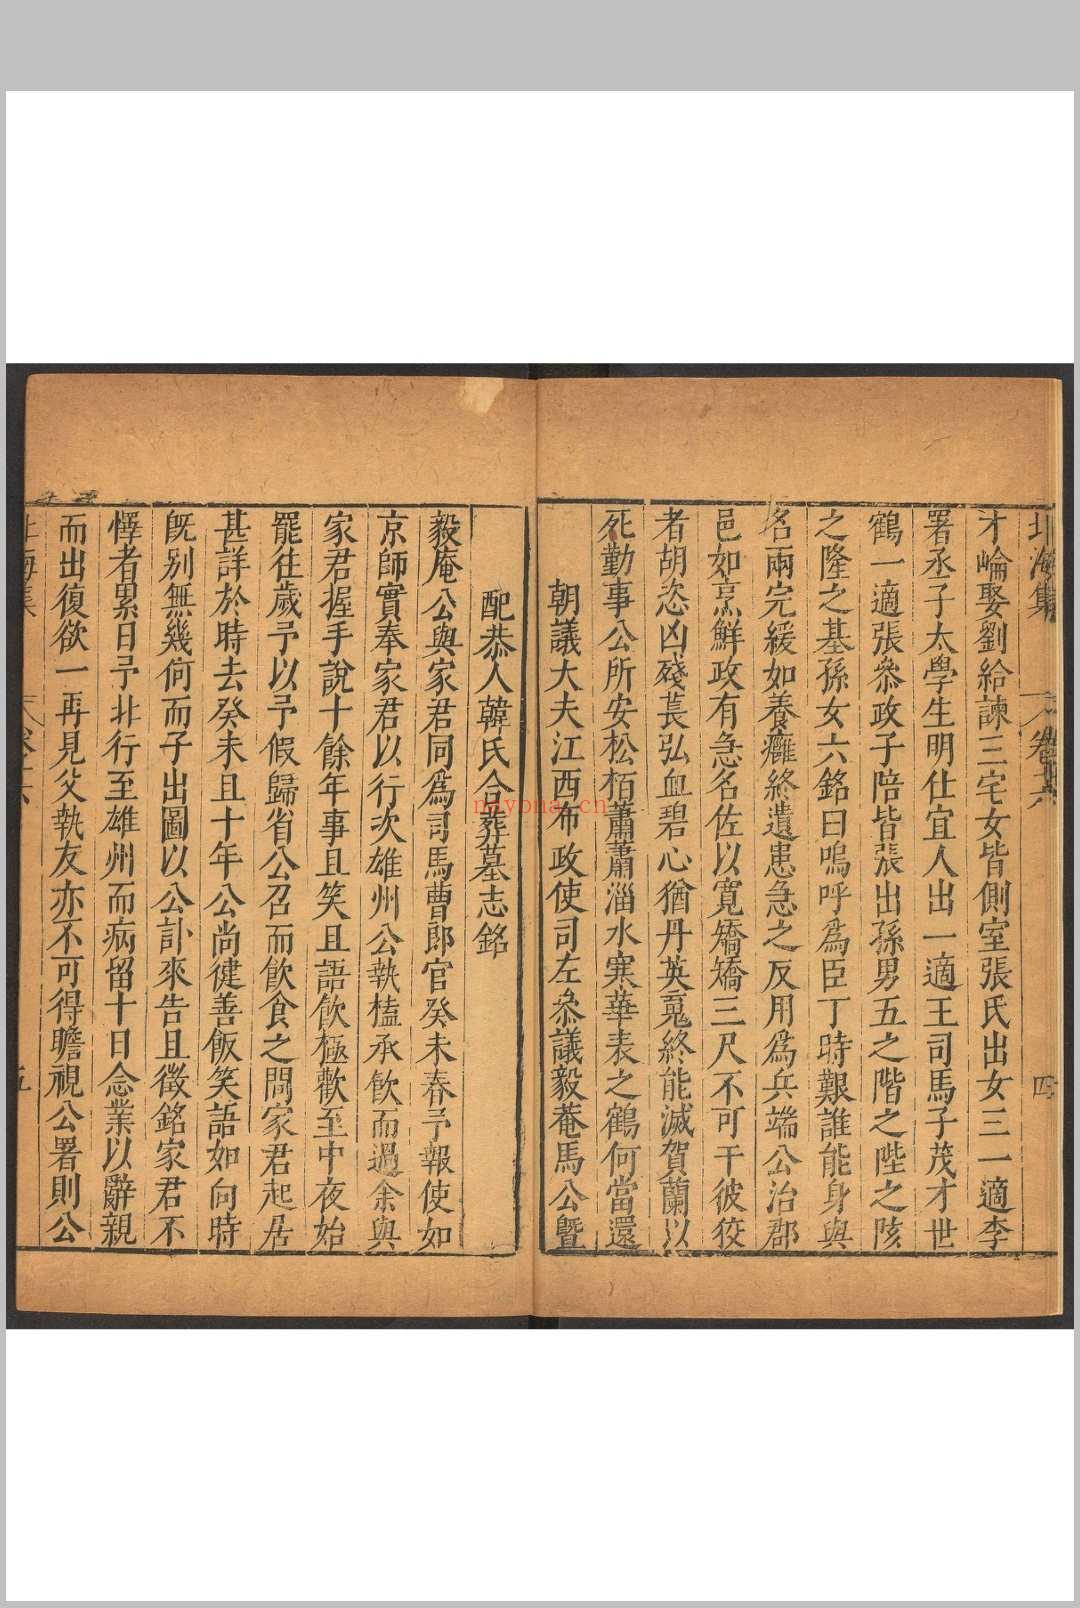 北海集 卷十六 四
才崘娶劉給諫三宅女皆側室張氏出女三一適李
署丞子太學生明仕宜人出一適王司馬子茂才世
鶴一適張參政子陪皆張出孫男五之階之陛之陔
之隆之基孫女六銘曰嗚呼爲臣丁時艱誰能身與
名兩完緩如養癰終遺患急之反用爲兵端公治郡
邑如烹鮮政有急名佐以寬矯矯三尺不可干彼狡
者胡恣凶殘萇弘血碧心猶丹英䰟終能滅賀蘭以
死勤事公所安松栢蕭蕭淄水寒華表之鶴何當還
朝議大夫江西布政使司左參議毅菴馬公曁
配恭人韓氏合葬墓志銘
毅庵公與家君同爲司馬曹郎官癸未春予報使如
京師實奉家君以行次雄州公執榼承飲而過余與
家君握手說十餘年事且笑且語飲極歡至中夜始
罷往歲予以予假歸省公召而飲食之問家君起居
甚詳於時去癸未且十年公尚健善飯笑語如向時
旣别無幾何而子出圖以公訃來告且徵銘家君不
懌者累日予北行至雄州而病留十日念業以辭親
而出復欲一再見父執友亦不可得瞻視公署則公
北海集 五
nayona.cn